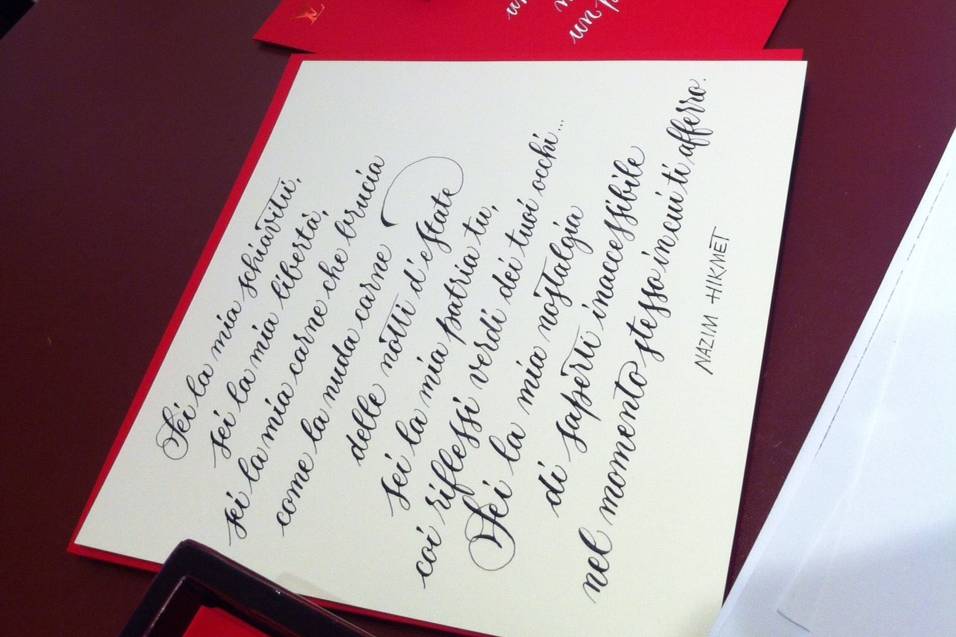 Sei la mia schiavitù,
sei la mia libertà,
sei la mia carne che brucia
come la nuda carne
delle notti d'estate
sei la mia patria tu,
coi riflessi verdi dei tuoi occhi...
Sei la mia nostalgia
di saperti inaccessibile
nel momento stesso in cui ti afferro.
NAZIM HIKMET